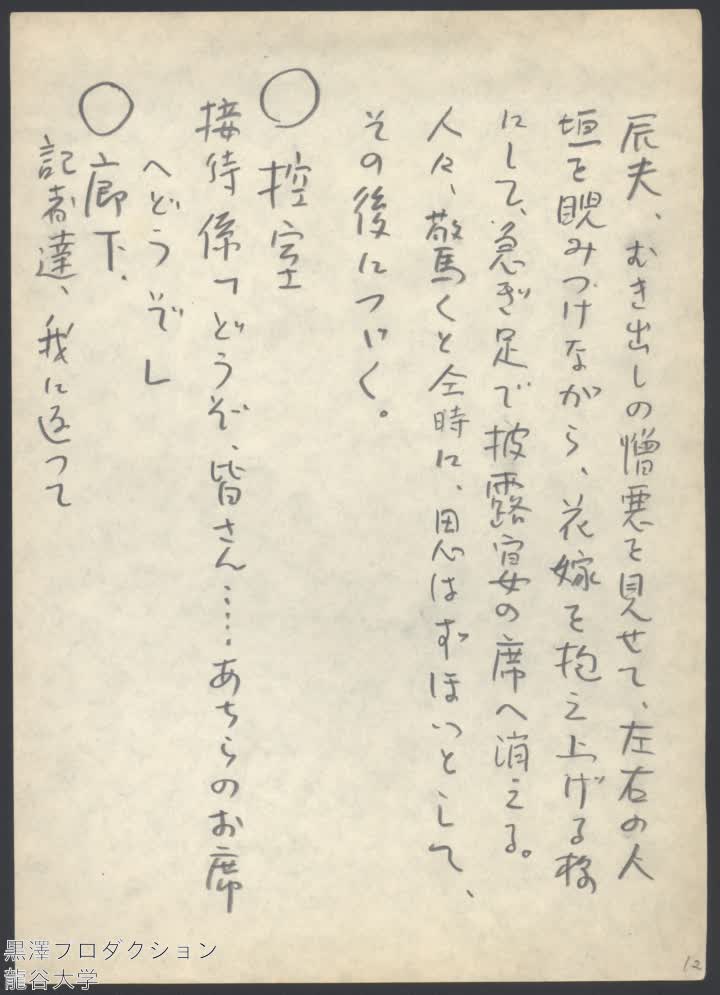 辰夫、むき出しの憎悪を見せて、左右の人
垣を睨みつけながら、花嫁を抱え上げる様
にして、急ぎ足で披露宴の席へ消える。
人々、驚くと仝時に、思はずほっとして、
その後につゞく。
○ 控室
接待係「どうぞ、皆さん……あちらのお席
へどうぞ」
○ 廊下
記者達、我に返って
12
黒澤プロダクション
龍谷大学